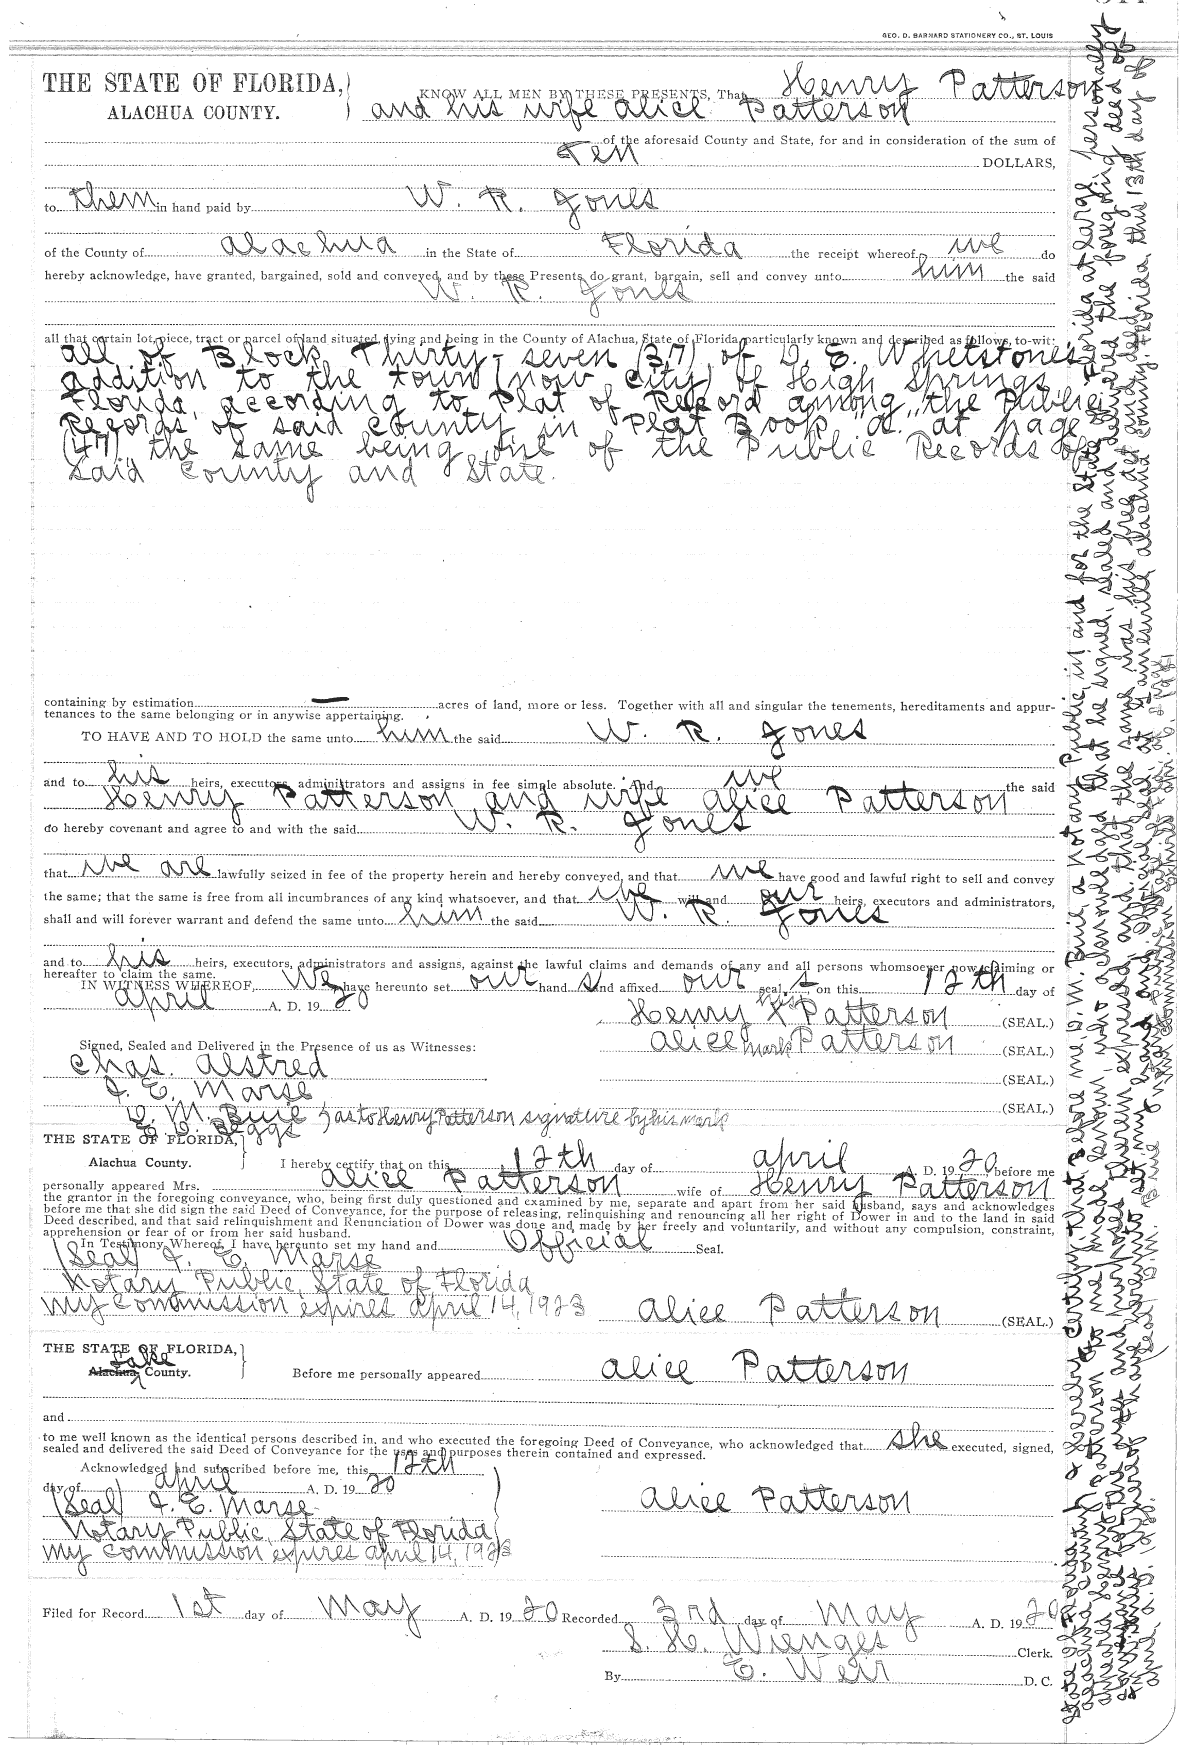 GEO. D. BARNARD STATIONERY CO., ST. LOUIS
THE STATE OF FLORIDA,
ALACHUA COUNTY.
KNOW ALL MEN BY THESE PRESENTS, That Henry Patterson
and his wife Alice Patterson
of the aforesaid County and State, for and in consideration of the sum of
Ten DOLLARS,
to them in hand paid by W. R. Jones
of the County of Alachua in the State of Florida the receipt whereof we do
hereby acknowledge, have granted, bargained, sold and conveyed, and by these Presents do grant, bargain, sell and convey unto him the said
W. R. Jones
all that certain lot, piece, tract or parcel of land situated, lying and being in the County of Alachua, State of Florida, particularly known and described as follows, to-wit:
All of Block Thirty-seven (37) of D. E. Whetstones
addition to the town (now City) of High Springs,
Florida, according to Plat of Record among the Public
Records of said County in Plat Book "A" at page
(47), the same being one of the Public Records of
said County and State.
containing by estimation — acres of land, more or less. Together with all and singular the tenements, hereditaments and appur-
tenances to the same belonging or in anywise appertaining.
TO HAVE AND TO HOLD the same unto him the said W. R. Jones
and to his heirs, executors, administrators and assigns in fee simple absolute. And we the said
Henry Patterson and wife Alice Patterson
do hereby covenant and agree to and with the said W. R. Jones
that we are lawfully seized in fee of the property herein and hereby conveyed, and that we have good and lawful right to sell and convey
the same; that the same is free from all incumbrances of any kind whatsoever, and that we will and our heirs, executors and administrators,
shall and will forever warrant and defend the same unto him the said W. R. Jones
and to his heirs, executors, administrators and assigns, against the lawful claims and demands of any and all persons whomsoever now claiming or
hereafter to claim the same.
IN WITNESS WHEREOF, We have hereunto set our hand s and affixed our seal s on this 12th day of
April A. D. 1920
his
Henry X Patterson (SEAL.)
mark
Alice Patterson (SEAL.)
Signed, Sealed and Delivered in the Presence of us as Witnesses:
Chas. Alstred
(SEAL.)
J. E. Marse
(SEAL.)
D. M. Buie } as to Henry Patterson signature by his mark
Beggs
THE STATE OF FLORIDA,
Alachua County.
I hereby certify that on this 12th day of April A. D. 1920 before me
personally appeared Mrs. Alice Patterson wife of Henry Patterson
the grantor in the foregoing conveyance, who, being first duly questioned and examined by me, separate and apart from her said husband, says and acknowledges
before me that she did sign the said Deed of Conveyance, for the purpose of releasing, relinquishing and renouncing all her right of Dower in and to the land in said
Deed described, and that said relinquishment and Renunciation of Dower was done and made by her freely and voluntarily, and without any compulsion, constraint,
apprehension or fear of or from her said husband.
In Testimony Whereof, I have hereunto set my hand and Official Seal.
(Seal) J. E. Marse
Notary Public, State of Florida
My Commission expires April 14, 1923
Alice Patterson (SEAL.)
THE STATE OF FLORIDA,
Lake
Alachua County.
Before me personally appeared Alice Patterson
and
to me well known as the identical persons described in, and who executed the foregoing Deed of Conveyance, who acknowledged that she executed, signed,
sealed and delivered the said Deed of Conveyance for the uses and purposes therein contained and expressed.
Acknowledged and subscribed before me, this 12th
day of April A. D. 1920
(Seal) J. E. Marse
Notary Public, State of Florida
My Commission expires April 14, 1923
Alice Patterson
Filed for Record 1st day of May A. D. 1920 Recorded 3rd day of May A. D. 1920
S. H. Wienges Clerk.
By E. Weir D. C.
I hereby certify that before me, D. M. Buie, a Notary Public, in and for the State of Florida at large, personally
that he signed, sealed and delivered the foregoing deed of
and that the same was his free act and deed.
Gainesville, Alachua County, Florida, this 13th day of